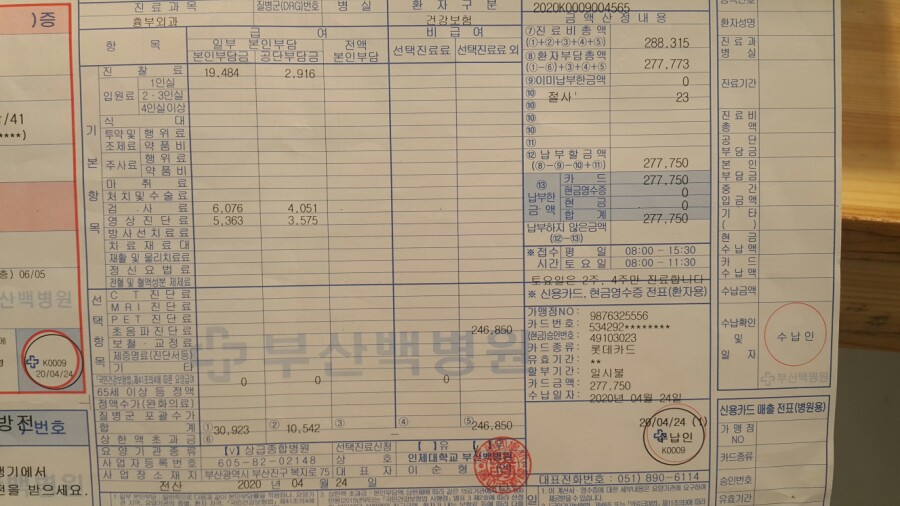 )증
/41
****)
층) 06/05
K0009
20/04/24
방전
/번호
행기에서
전을 받으세요.
진료과목 질병군(DRG)번호 병실 환자구분 2020K0009004565
흉부외과 건강보험 금액산정내용
항목 급여 비급여
일부 본인부담 전액 본인부담 선택진료료 선택진료료 외
본인부담금 공단부담금
기본항목
진찰료 19,484 2,916
입원료 1인실
2·3인실
4인실이상
식대
투약및조제료 행위료
약품비
주사료 행위료
약품비
마취료
처치및수술료
검사료 6,076 4,051
영상진단료 5,363 3,575
방사선치료료
치료재료대
재활및물리치료료
정신요법료
전혈 및 혈액성분 제제료
선택항목
CT 진단료
MRI 진단료
PET 진단료
초음파진단료 246,850
보철·교정료
제증명료(진단서등)
기타
0 0 0
65세 이상 등 정액
정액수가(완화의료)
질병군 포괄수가
합계 ①30,923 ②10,542 ③ ④ ⑤246,850
상한액초과금 ⑥ –
요양기관종류 [√] 상급종합병원 선택진료신청 [ ]유 [ ]
사업자등록번호 605-82-02148 상호 인제대학교 부산백병원
사업장소재지 부산광역시 부산진구 복지로 75 대표자 이순형
전산 2020 년 04 월 24 일
부산백병원
⑦진료비총액
(①+②+③+④+⑤) 288,315
⑧환자부담총액
(①-⑥)+③+④+⑤ 277,773
⑨이미납부한금액 0
⑩ 절사 23
⑩
⑩
⑩
⑪
⑫납부할금액
(⑧-⑨-⑩+⑪) 277,750
⑬납부한금액
카드 277,750
현금영수증 0
현금 0
합계 277,750
납부하지 않은금액
(⑫-⑬)
※접수시간 평일 08:00 - 15:30
토요일 08:00 - 11:30
토요일은 2주, 4주만 진료합니다
※ 신용카드, 현금영수증 전표(환자용)
가맹점NO: 9876325556
카드번호: 534292********
(현금)승인번호: 49103023
카드종류: 롯데카드
유효기간: **
할부기간: 일시불
카드금액: 277,750
수납일자: 2020년 04월 24일
20/04/24 (1)
납인
K0009
대표전화번호 : (051) 890-6114
환자성명
진료과
병실
진료기간
진료비총액
공단부담금
본인부담금
중간입금액
기타
( )
현금수납액
카드수납액
수납금액
수납확인
및
일자
수납인
부산백병원
신용카드 매출 전표(병원용)
가맹점NO
카드종류
승인번호
유효기간